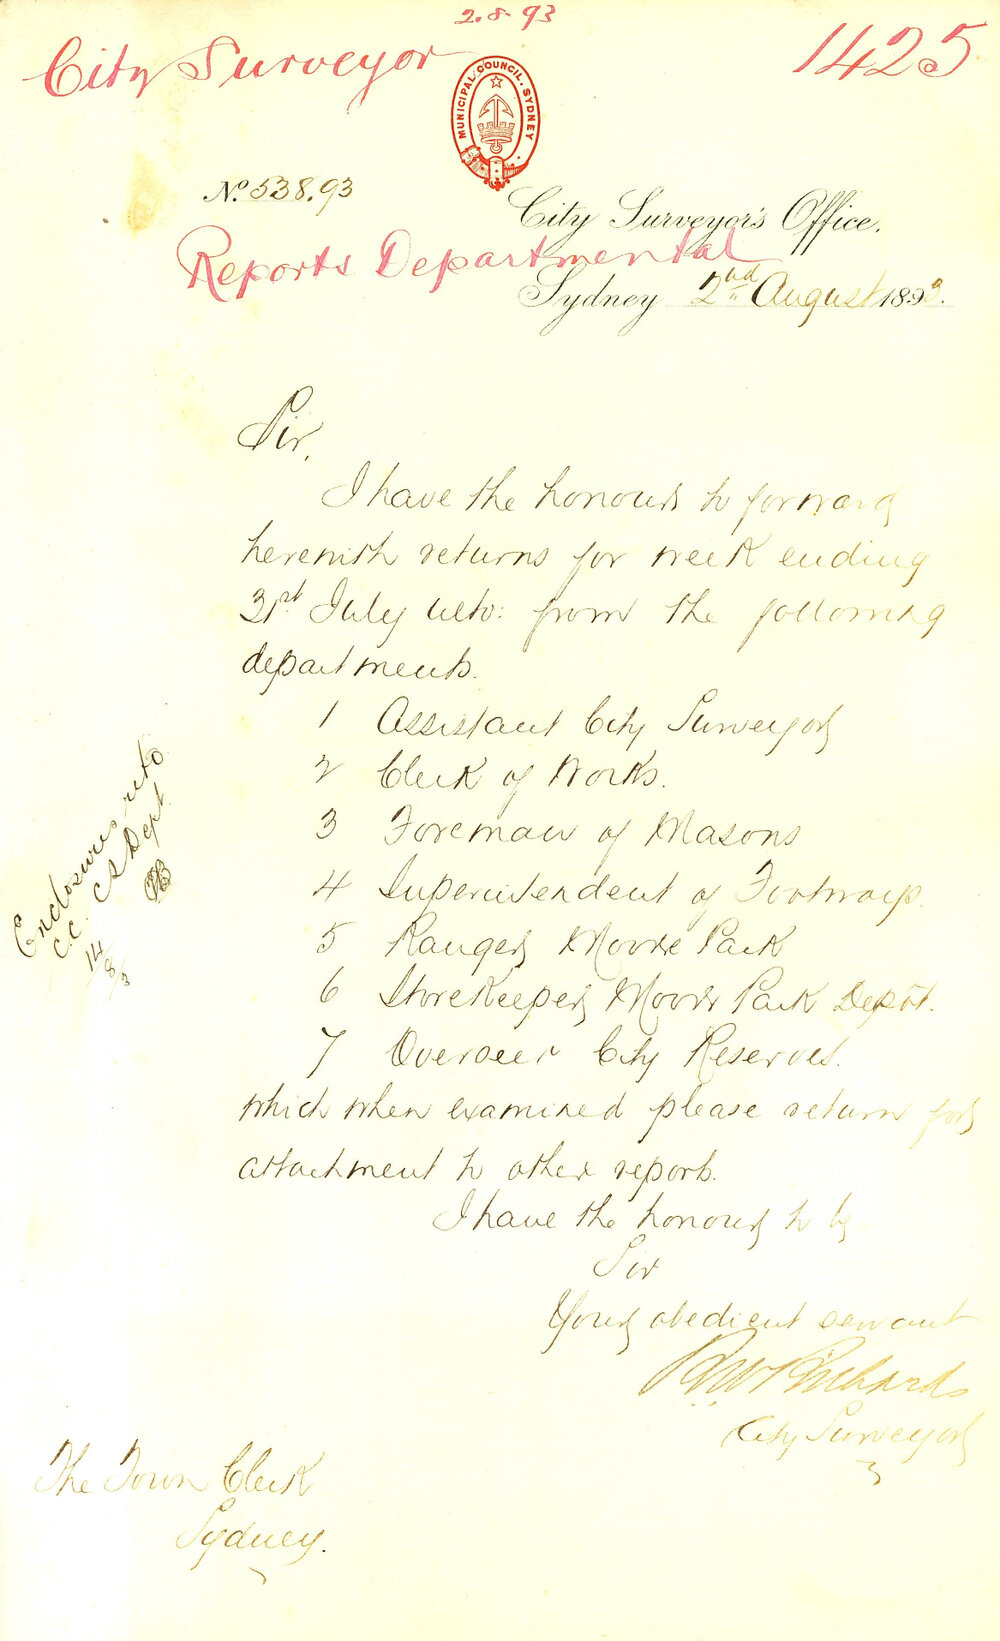 2.8.93
City Surveyor
1425
MUNICIPAL COUNCIL. SYDNEY
No. 538.93
City Surveyor's Office.
Reports Departmental
Sydney 2nd August 1893.
Sir,
I have the honour to forward
herewith returns for week ending
31st July ulto: from the following
departments.
1 Assistant City Surveyor
2 Clerk of Works.
3 Foreman of Masons
4 Superintendent of Footways.
5 Ranger Moore Park
6 Storekeeper Moore Park Depôt.
7 Overseer City Reserves.
which when examined please return for
attachment to other reports.
I have the honour to be
Sir
Your obedient servant
RW Richards
City Surveyor
The Town Clerk
Sydney.
Enclosures retd
C.C. CS Dept
14/8/3